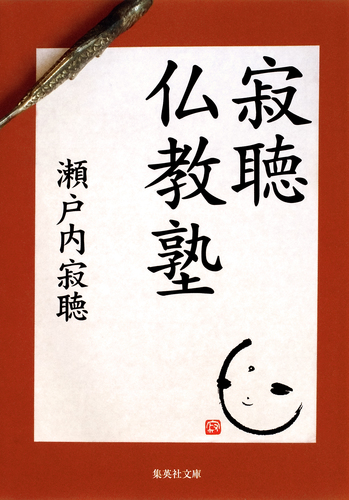 寂聴
仏教塾
瀬戸内寂聴
寂
集英社文庫